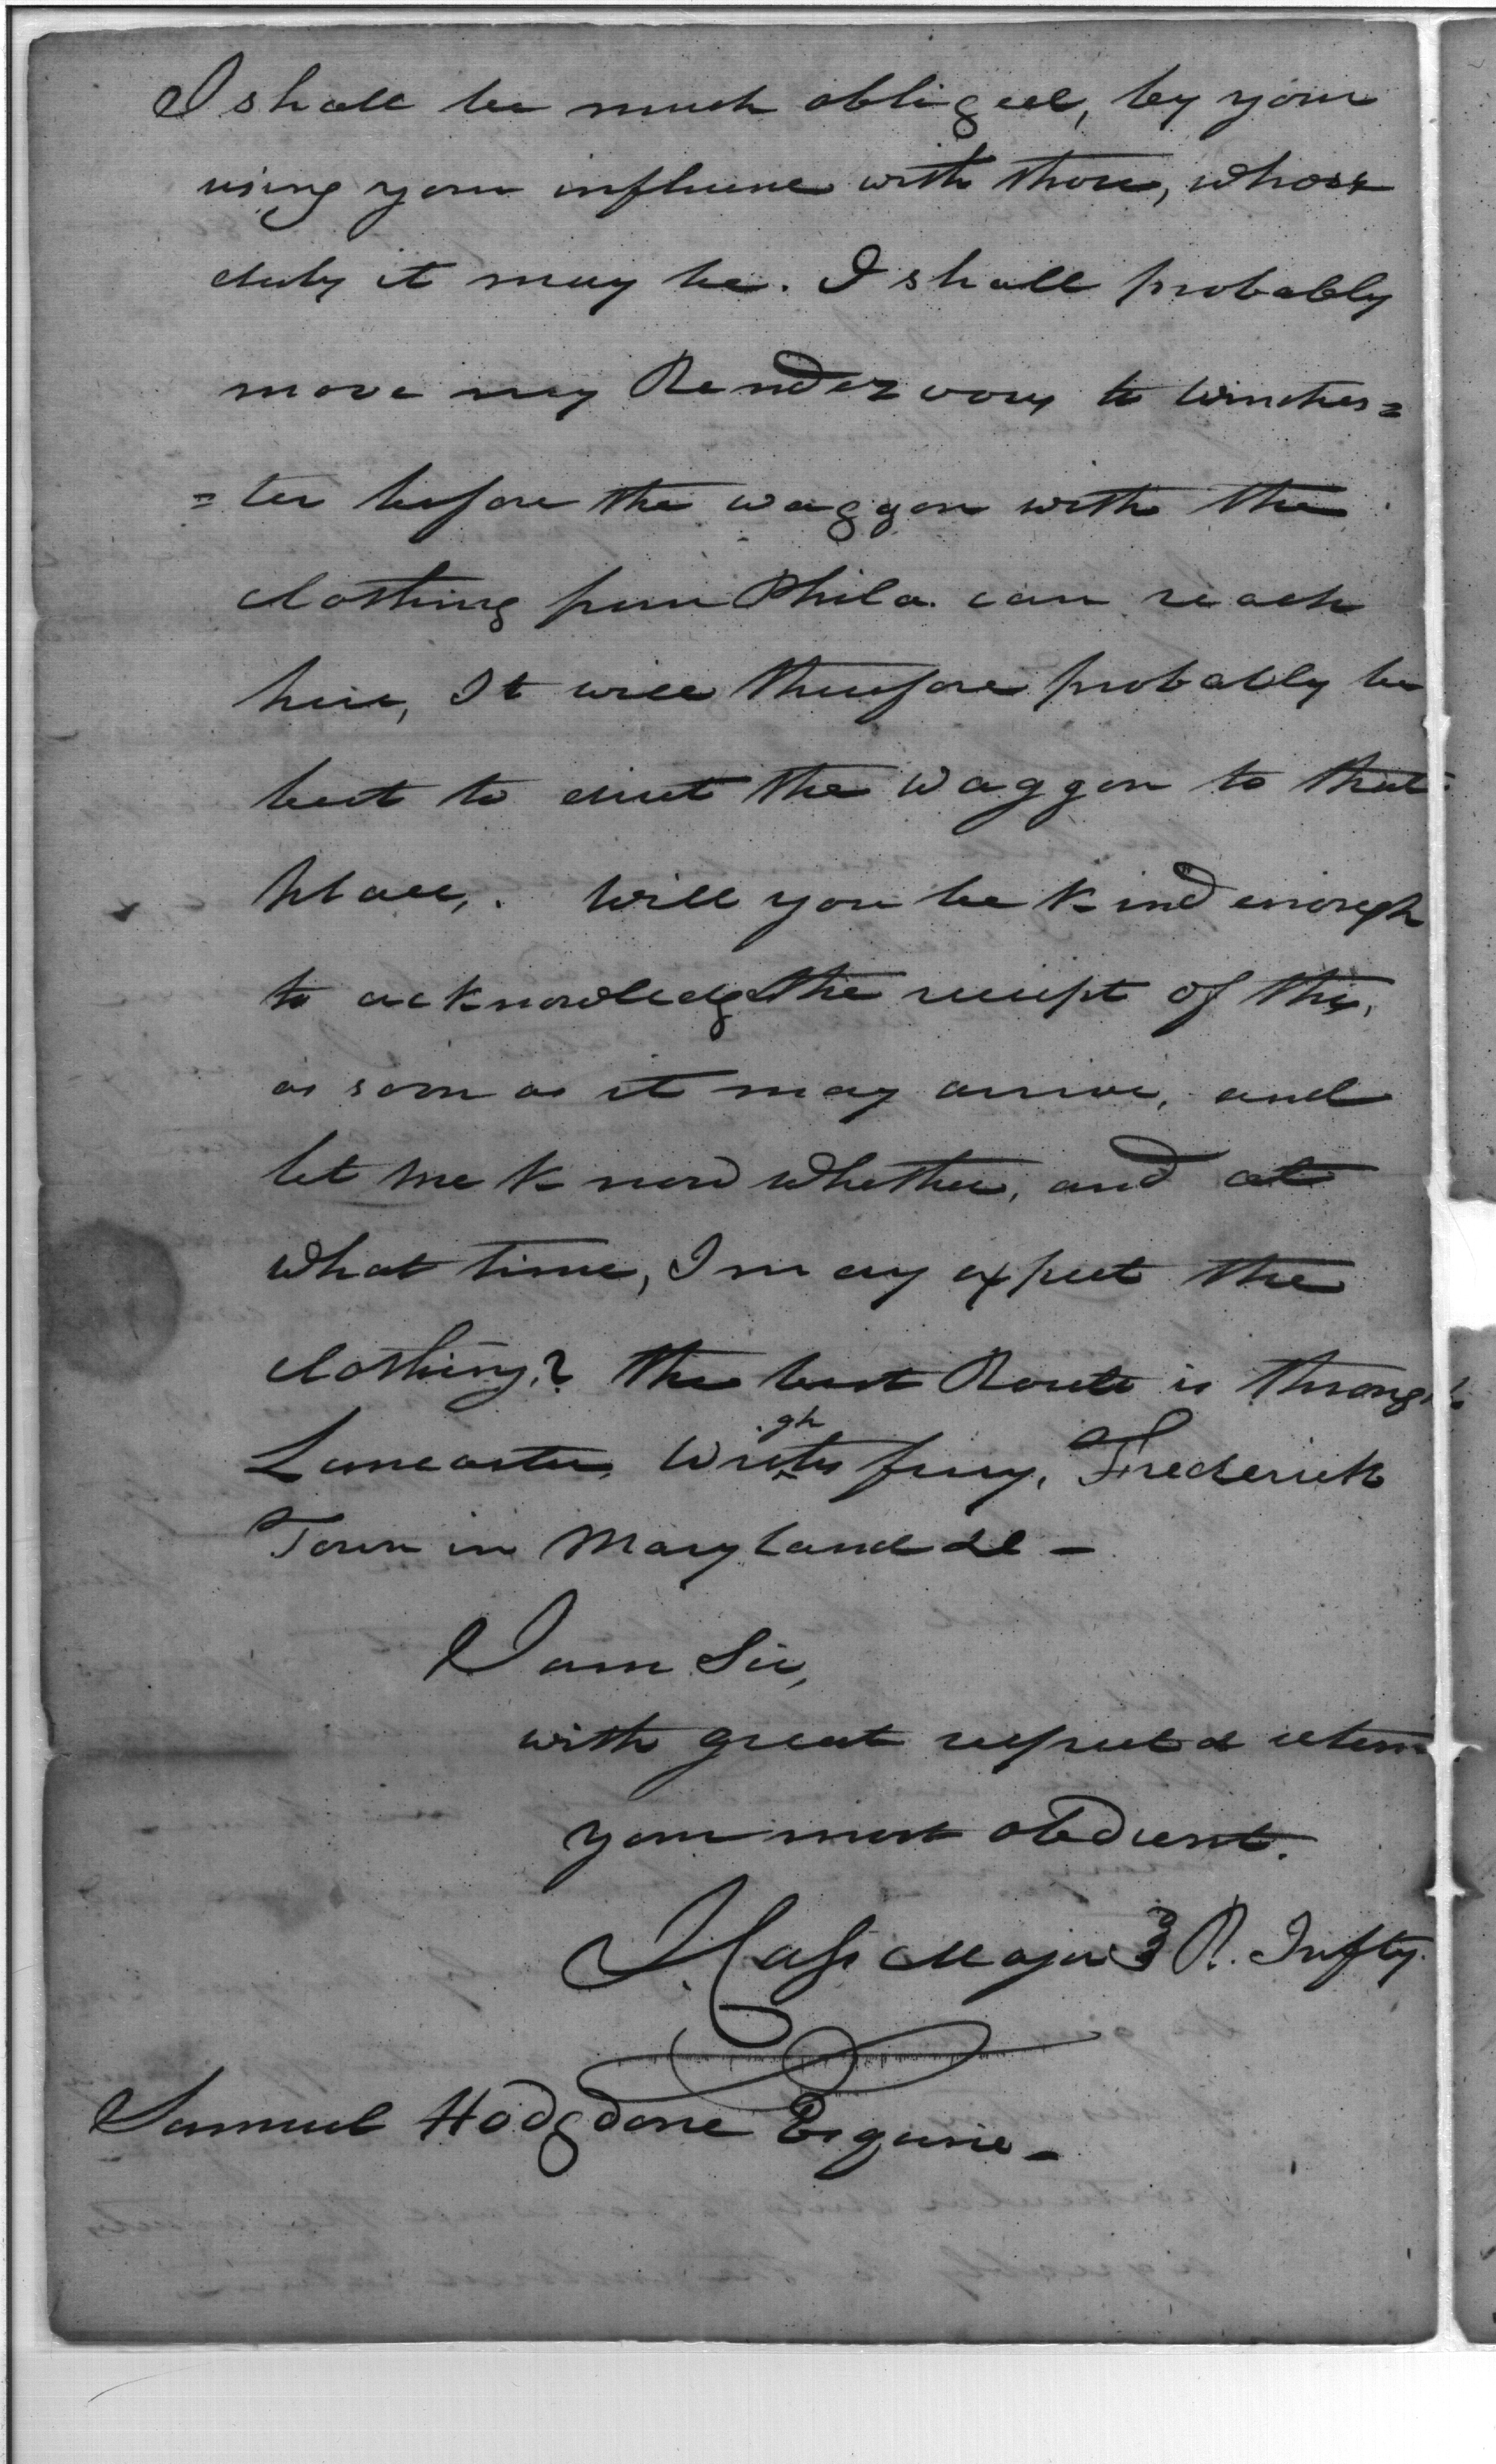 I shall be much obliged, by your
using your influence with those, whose
duty it may be. I shall probably
move my Rendezvous to Winches=
=ter before the waggon with the
clothing from Phila. can reach
here, It will therefore probably be
best to direct the Waggon to that
place,. Will you be kind enough
to acknowledge the receipt of this,
as soon as it may arrive, and
let me know whether, and at
what time, I may expect the
clothing? The best Route is through
Lancaster, Wrights ferry, Frederick
Town in Maryland &c -
I am Sir,
with great respect & esteem
your most obedient.
Major 3 R. Infty.
Samuel Hodgdone Esquire -